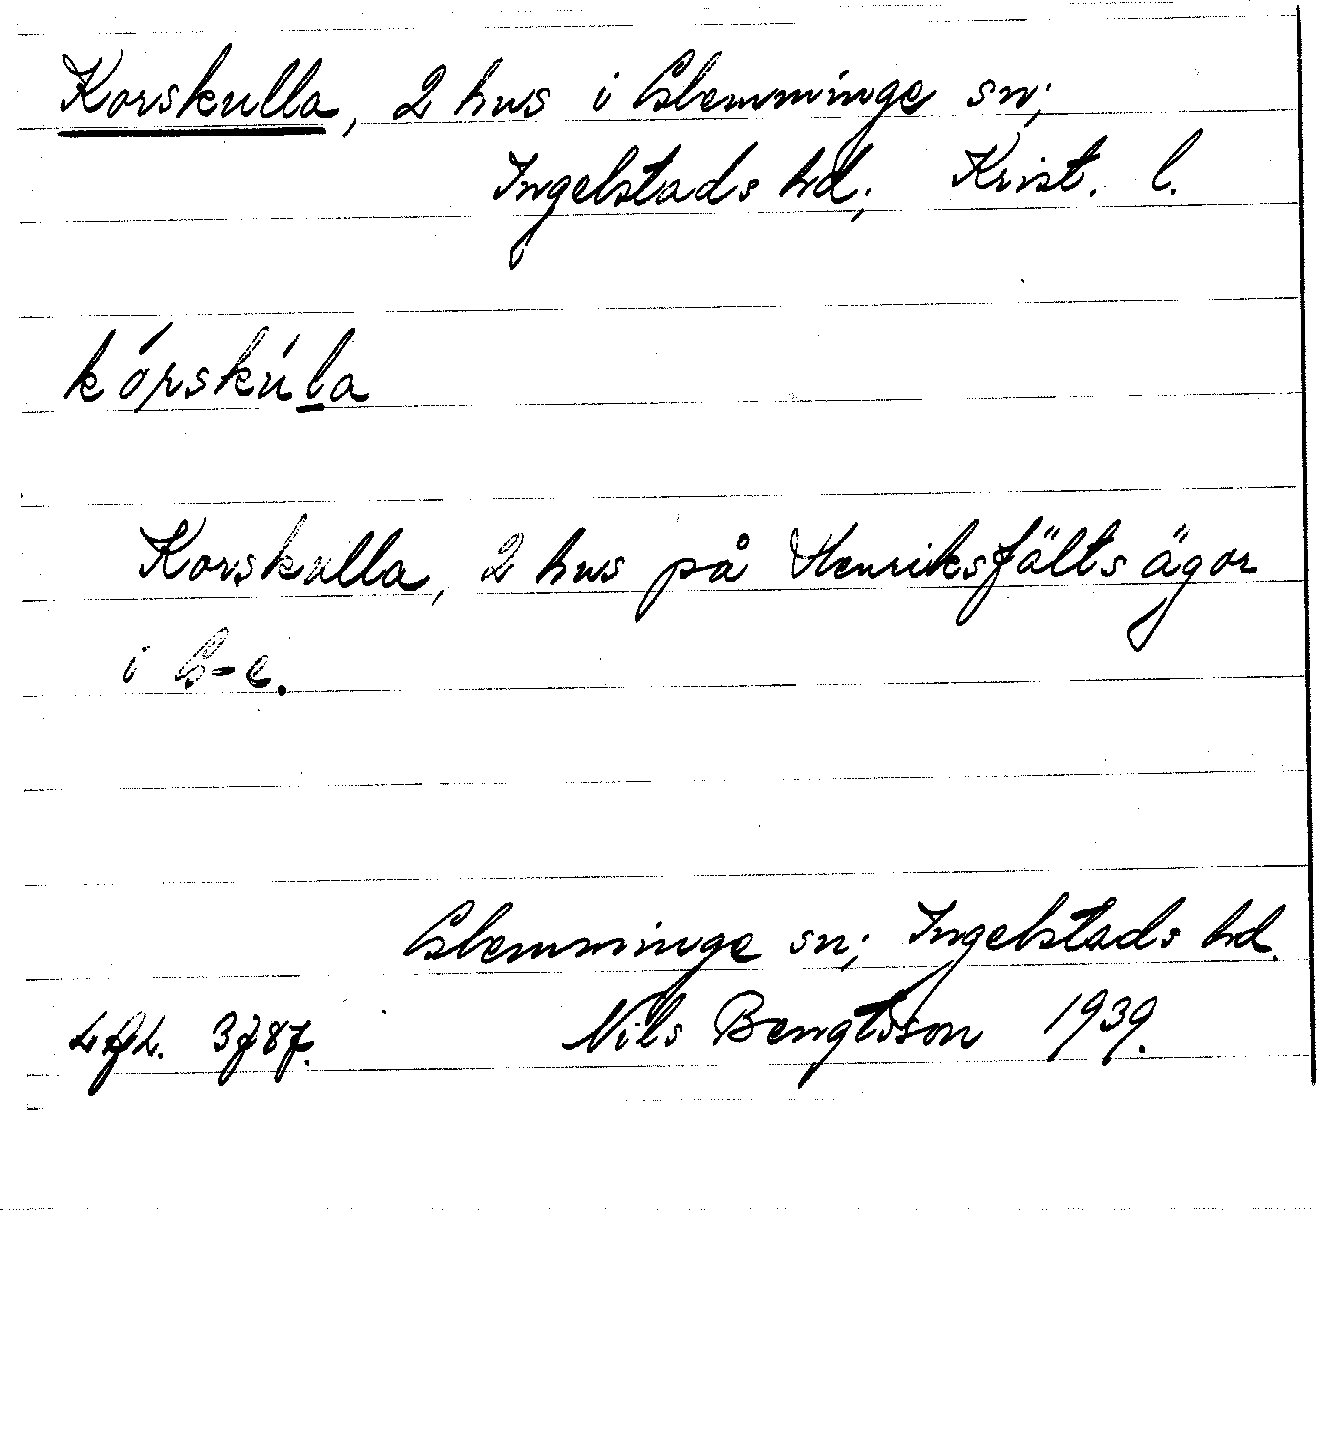 Korskulla, 2 hus i Glemminge sn;
Ingelstads hd; Krist. l.
kórskúla
Korskulla, 2 hus på Henriksfälts ägor
i G-e.
Glemminge sn; Ingelstads hd.
Nils Bengtsson 1939.
3787.